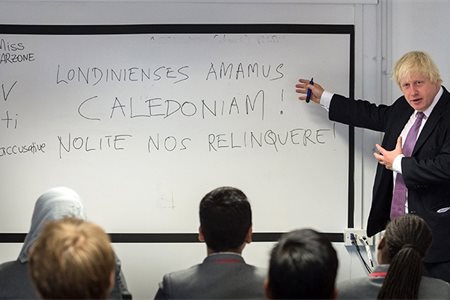 Miss
GARZONE
LONDINIENSES AMAMUS
CALEDONIAM!
NOLITE NOS RELINQUERE!
V
ti
accusative